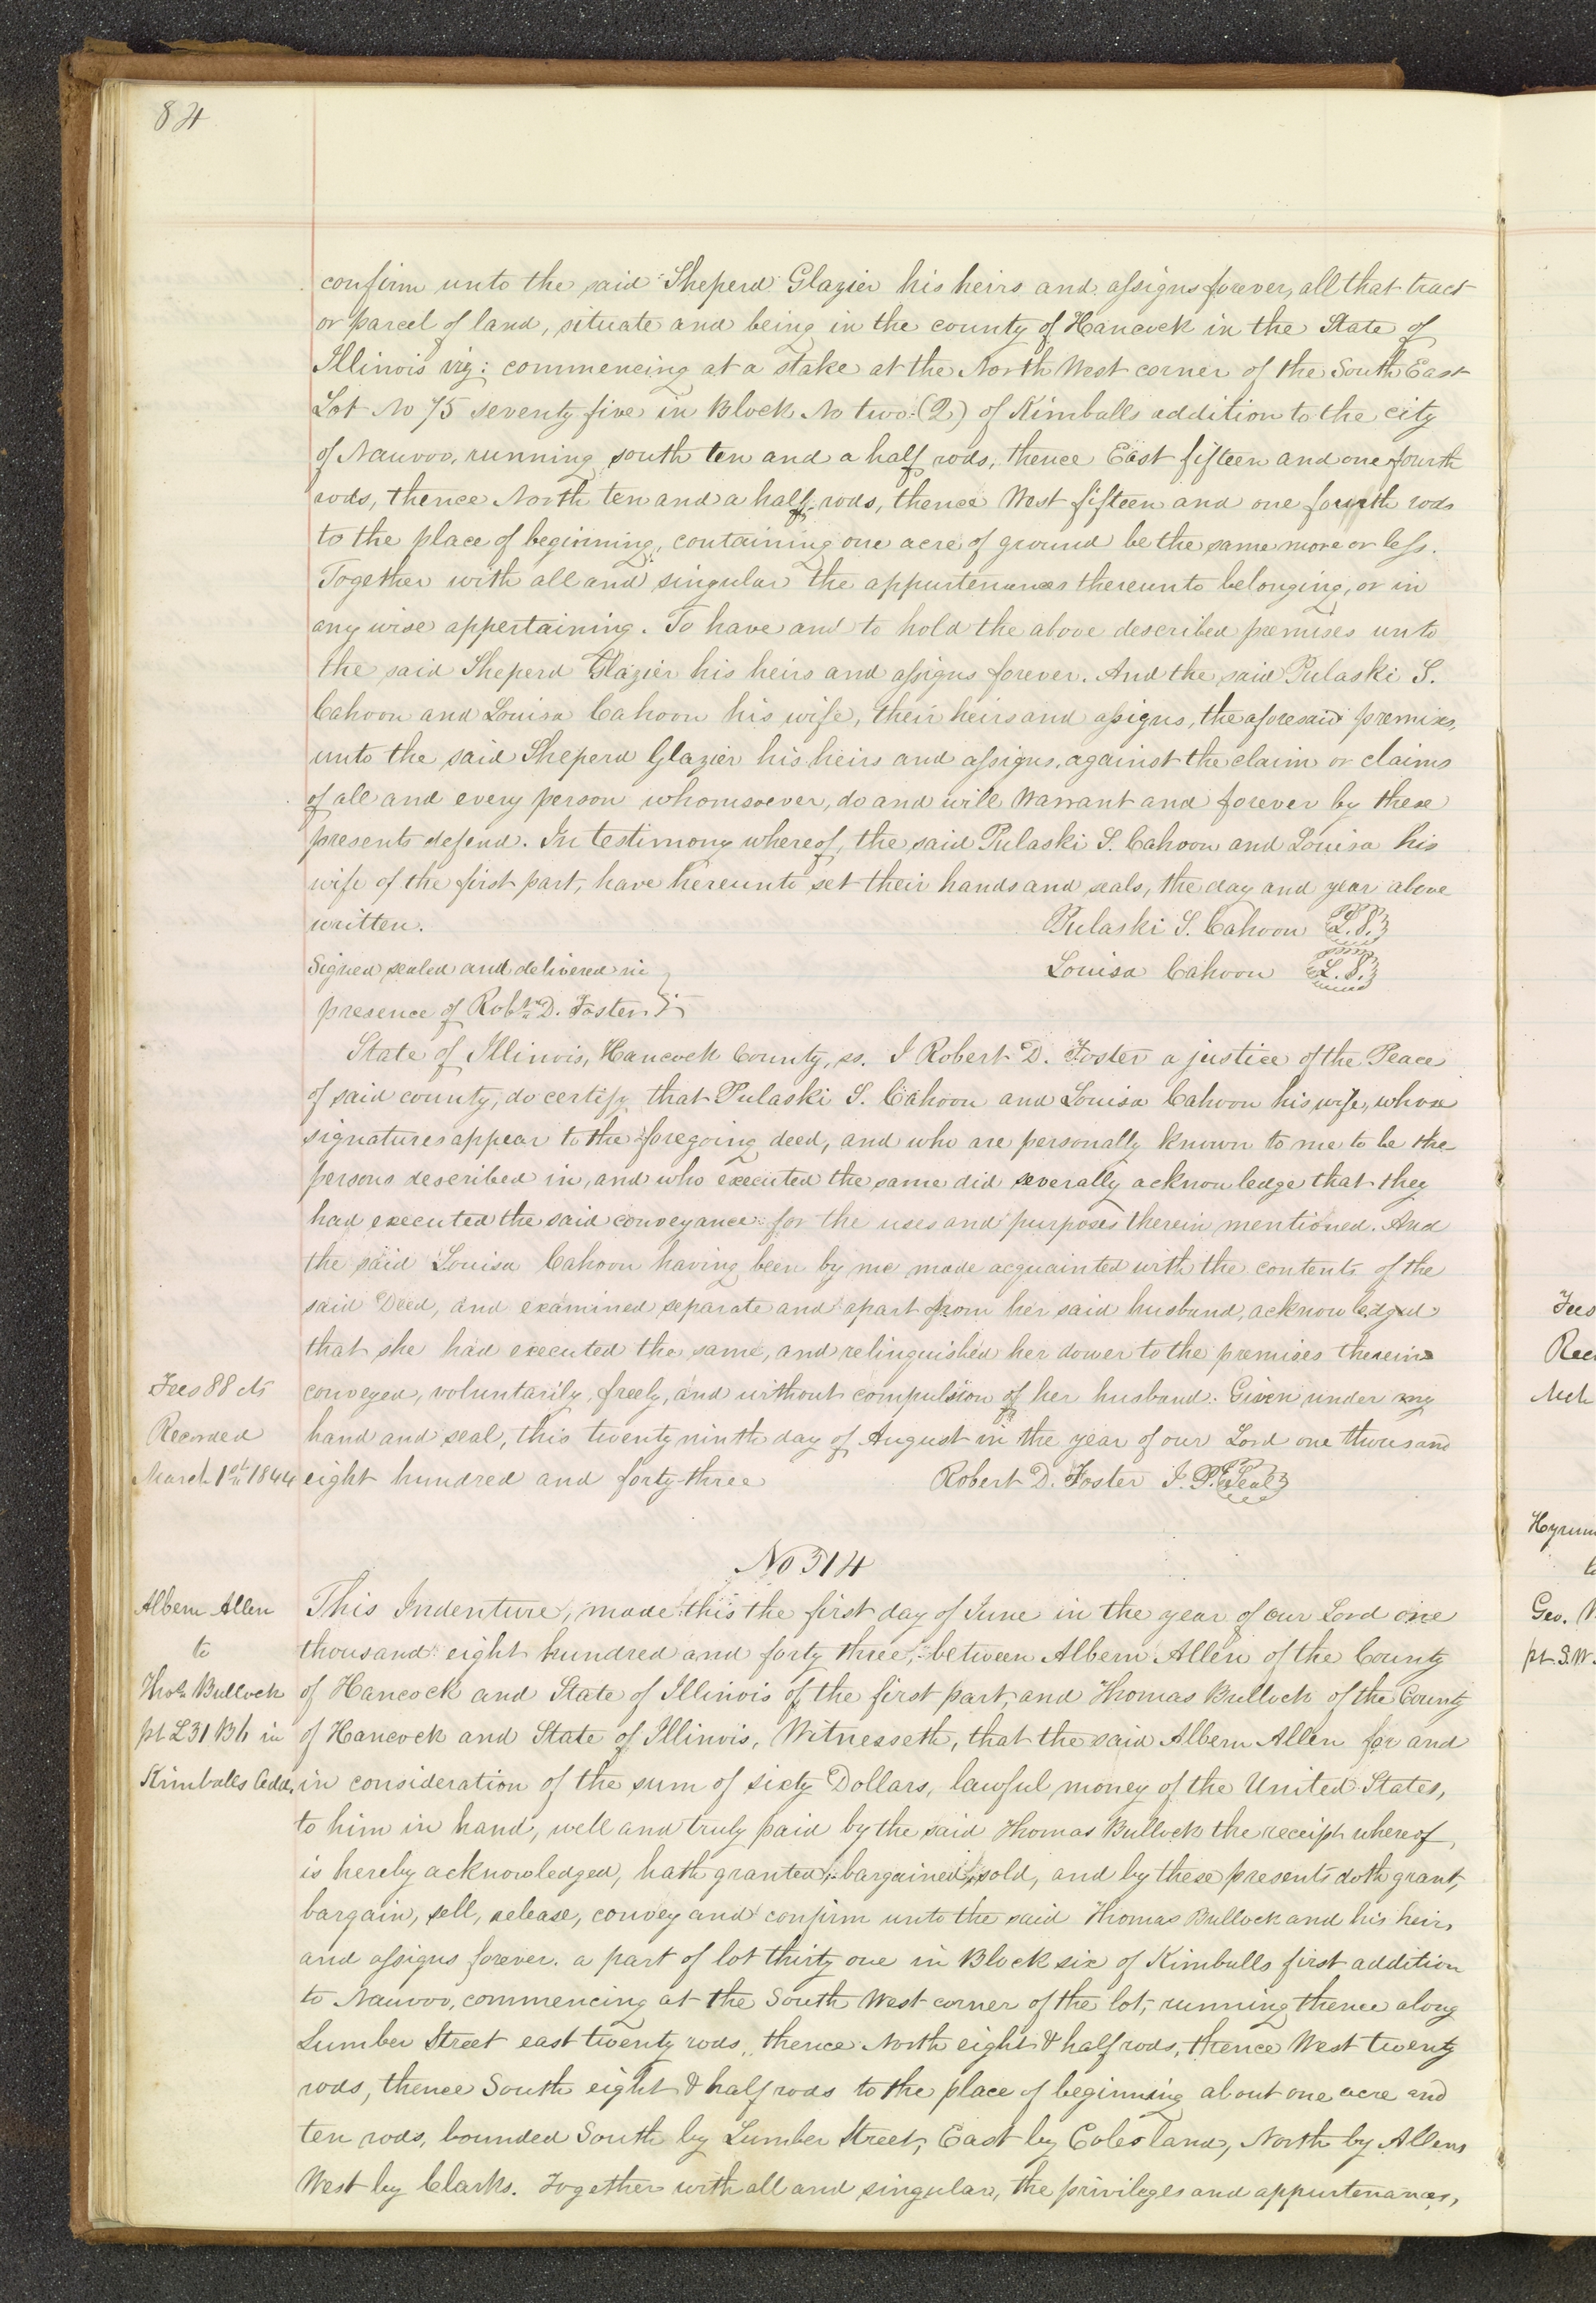 84
confirm unto the said Sheperd Glazier his heirs and assigns forever, all that tract
or parcel of land, situate and being in the county of Hancock in the State of
Illinois viz: commencing at a stake at the North West corner of the South East
Lot No 75 seventy five in Block No two (2) of Kimballs addition to the city
of Nauvoo, running south ten and a half rods, thence East fifteen and one fourth
rods, thence North ten and a half rods, thence West fifteen and one fourth rods
to the place of beginning, containing one acre of ground be the same more or less.
Together with all and singular the appurtenances thereunto belonging, or in
any wise appertaining. To have and to hold the above described premises unto
the said Sheperd Glazier his heirs and assigns forever. And the said Pulaski S.
Cahoon and Louisa Cahoon his wife, their heirs and assigns, the aforesaid premises,
unto the said Sheperd Glazier his heirs and assigns, against the claim or claims
of all and every person whomsoever, do and will Warrant and forever by these
presents defend. In testimony whereof, the said Pulaski S. Cahoon and Louisa his
wife of the first part, have hereunto set their hands and seals, the day and year above
written. Pulaski S. Cahoon L.S.
Signed sealed and delivered in Louisa Cahoon L.S.
presence of Robt. D. Foster
State of Illinois, Hancock County, ss. I Robert D. Foster a justice of the Peace
of said county, do certify that Pulaski S. Cahoon and Louisa Cahoon his wife, whose
signatures appear to the foregoing deed, and who are personally known to me to be the
persons described in, and who executed the same did severally acknowledge that they
had executed the said conveyance for the uses and purposes therein mentioned. And
the said Louisa Cahoon having been by me made acquainted with the contents of the
said Deed, and examined separate and apart from her said husband, acknowledged
that she had executed the same, and relinquished her dower to the premises therein
Fees 88 cts conveyed, voluntarily, freely, and without compulsion of her husband. Given under my
Recorded hand and seal, this twenty ninth day of August in the year of our Lord one thousand
March 1st 1844 eight hundred and forty-three Robert D. Foster J. P. Seal
No 314
Albern Allen This Indenture, made this the first day of June in the year of our Lord one
to thousand eight hundred and forty three, between Albern Allen of the County
Thos Bullock of Hancock and State of Illinois of the first part, and Thomas Bullock of the County
pt L31 B6 in of Hancock and State of Illinois, Witnesseth, that the said Albern Allen for and
Kimballs Add. in consideration of the sum of sixty Dollars, lawful money of the United States,
to him in hand, well and truly paid by the said Thomas Bullock the receipt whereof,
is hereby acknowledged, hath granted, bargained, sold, and by these presents doth grant,
bargain, sell, release, convey and confirm unto the said Thomas Bullock and his heirs
and assigns forever. a part of lot thirty one in Block six of Kimballs first addition
to Nauvoo, commencing at the South West corner of the lot, running thence along
Lumber Street east twenty rods, thence North eight & half rods, thence West twenty
rods, thence South eight & half rods to the place of beginning about one acre and
ten rods, bounded South by Lumber Street, East by Coles land, North by Allens
West by Clarks. Together with all and singular, the privileges and appurtenances,
Fees
Rec
Mch
Hyrum
Geo.
pt S.W.